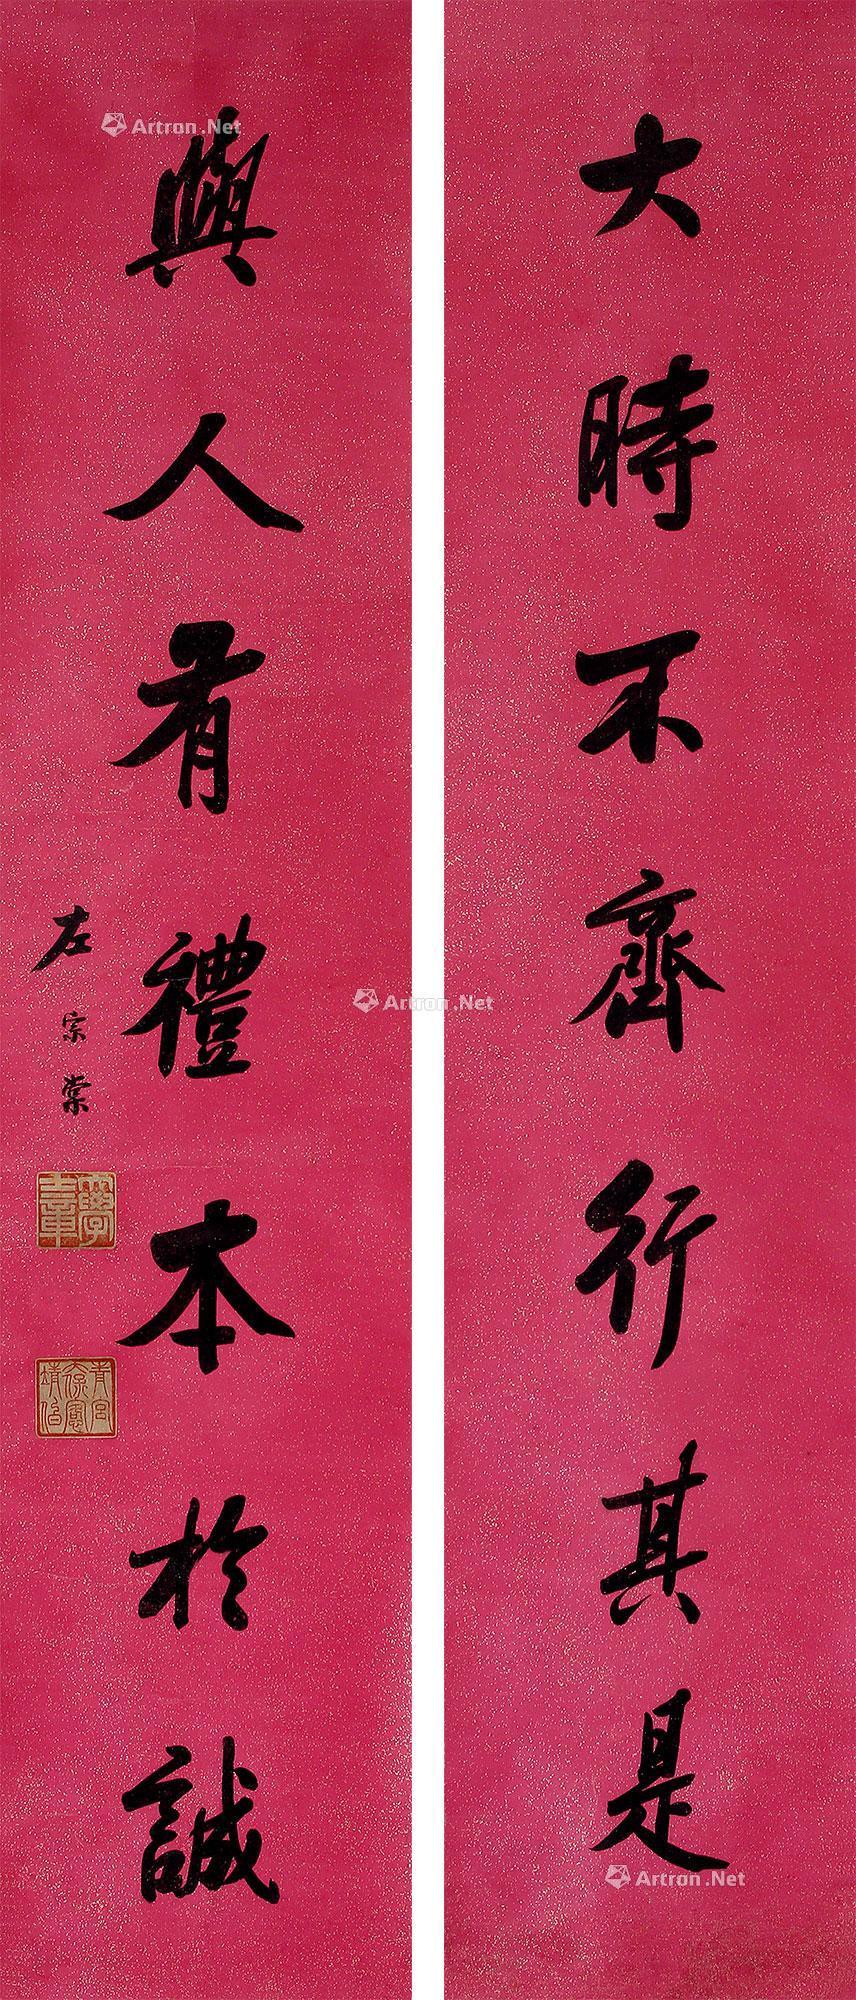 大時不齊行其是
與人有禮本於誠
左宗棠
大學士章
青宮太保恪靖伯
Artron.Net
Artron.Net
Artron.Net